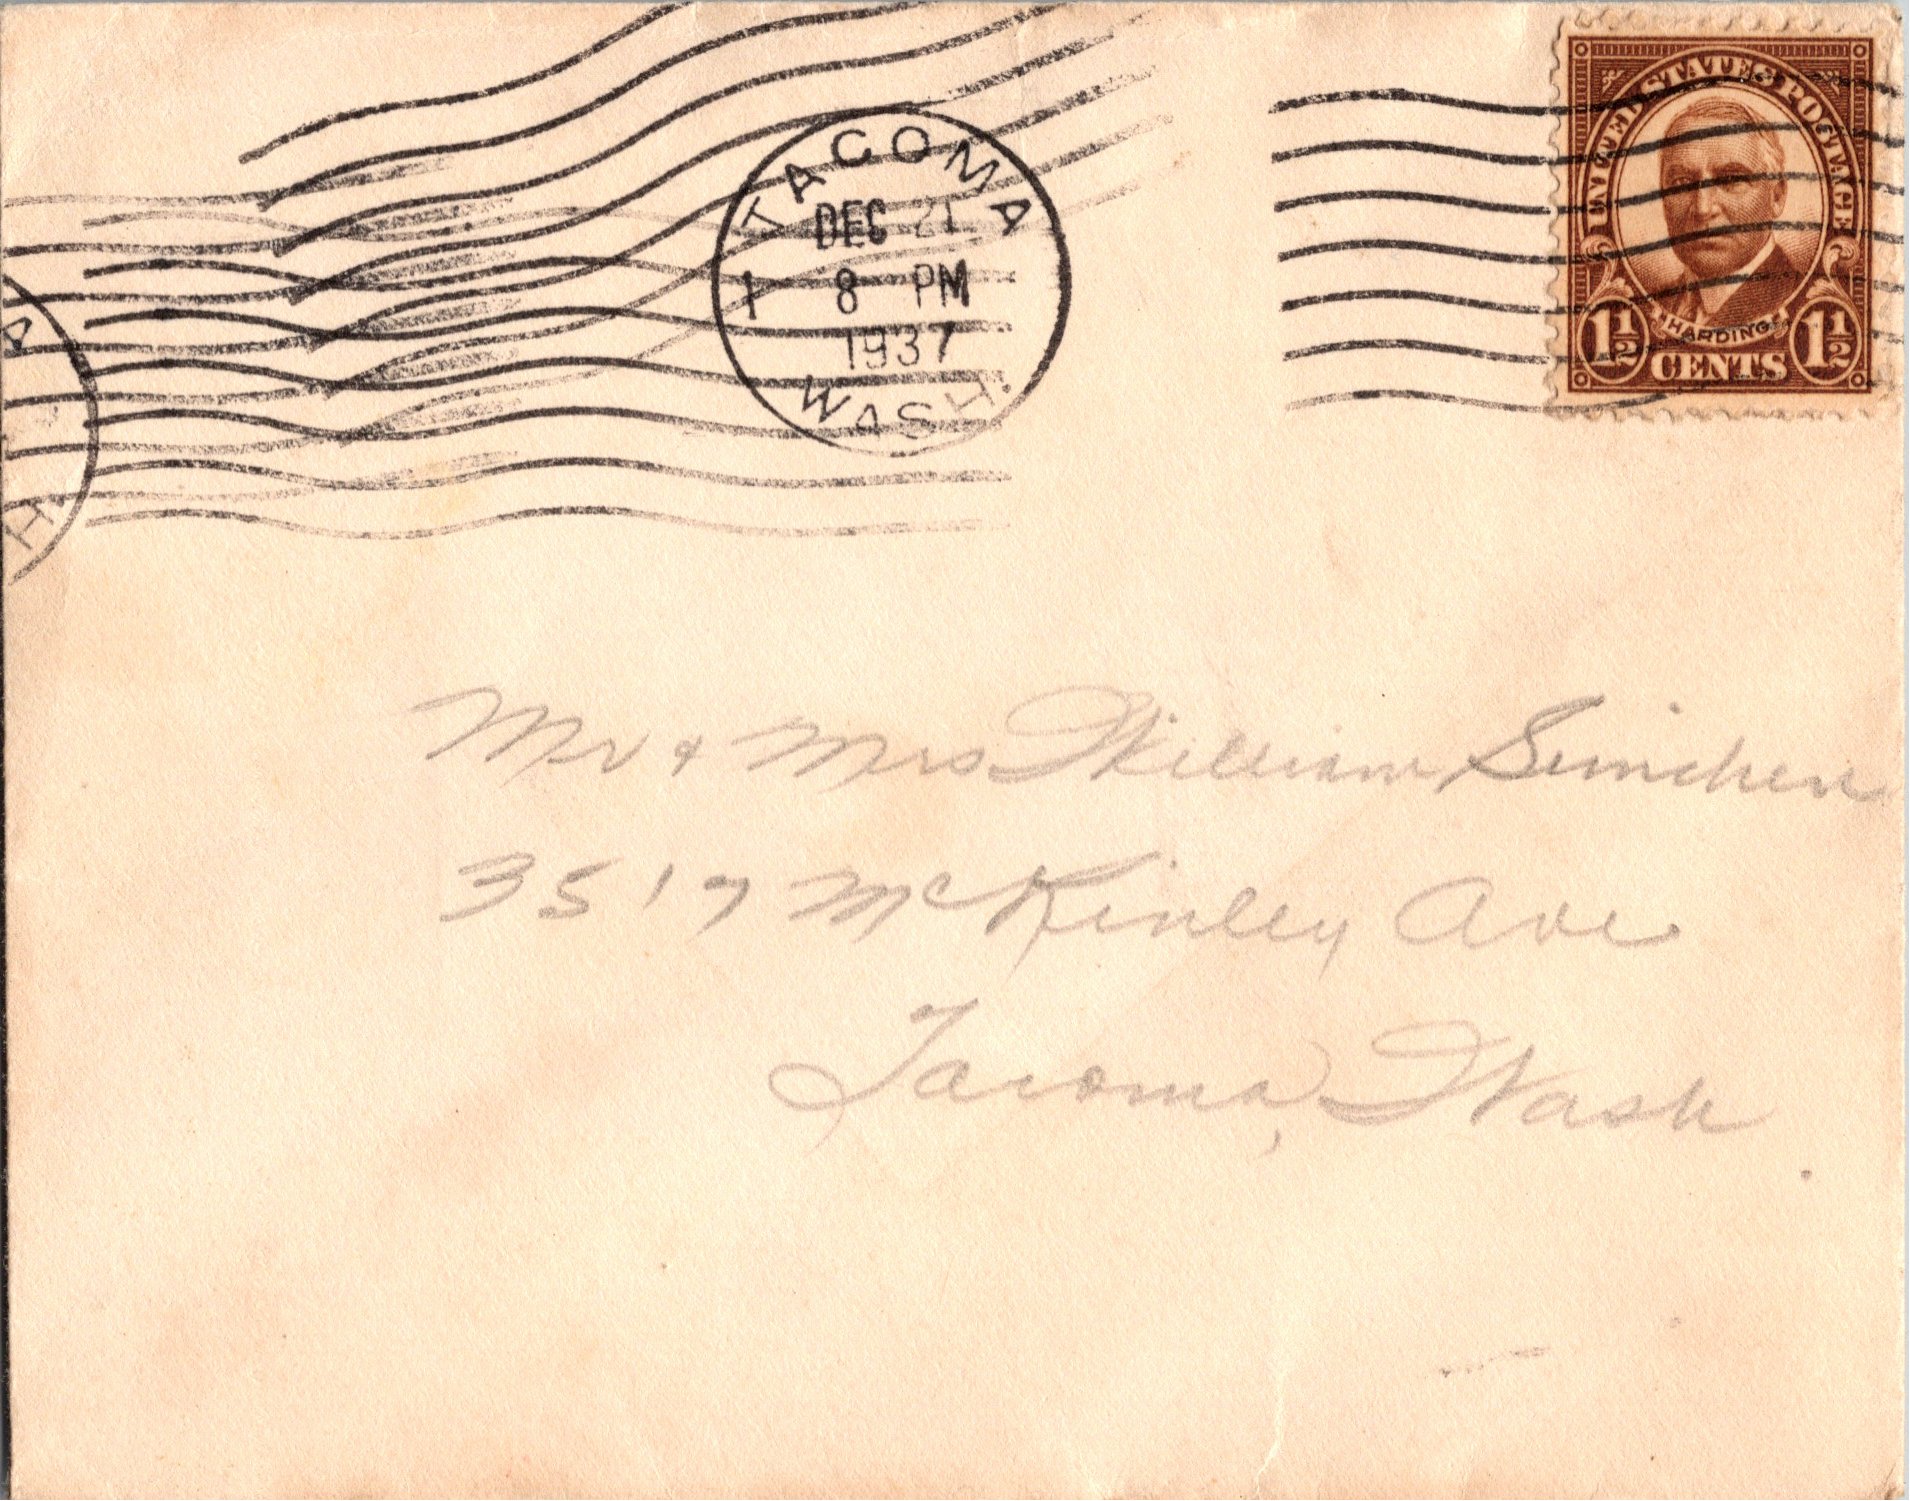 TACOMA
DEC 21
1 8 PM
1937
WASH.
A
H.
UNITED STATES POSTAGE
"HARDING"
1½ CENTS 1½
Mr & Mrs William
3517 McKinley Ave
Tacoma, Wash.